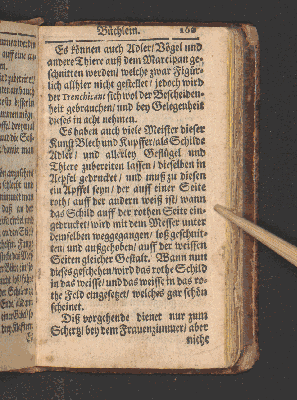 Büchlein.
Es können auch Adler / Vögel und
andere Thiere auß dem Marcipan ge-
schnitten werden / welche zwar Figür-
lich allhier nicht gestellet / jedoch wird
der Trenchirant sich wol der Bescheiden-
heit gebrauchen / und bey Gelegenheit
dieses in acht nehmen.
Es haben auch viele Meister dieser
Kunst Blech und Kupffer / als Schilde
Adler / und allerley Geflügel und
Thiere zubereiten lassen / dieselben in
Aepfel gedrucket / und muß zu diesen
ein Apffel seyn / der auff einer Seite
roth / auff der andern weiß ist / wann
das Schild auff der rothen Seite ein-
gedrucket / wird mit dem Messer unter
demselben weggegangen / loß geschnit-
ten / und außgehoben / auff der weissen
Seiten gleicher Gestalt. Wann nun
dieses geschehen / wird das rothe Schild
in das weisse / und das weisse in das ro-
the Feld eingesetzet / welches gar schön
scheinet.
Diß vorgehende dienet nur zum
Schertz / bey dem Frauenzimmer / aber
nicht